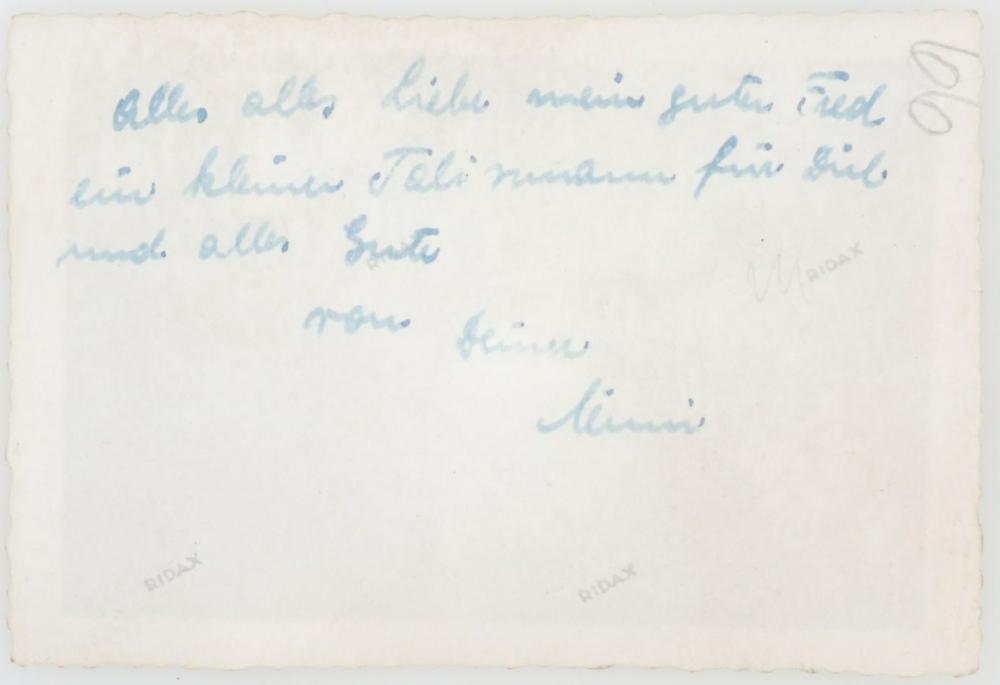 Alles alles Liebe mein guter Fred
ein kleiner Talismann für Dich
und alles Gute
von Deiner
Mimi
99
RIDAX
RIDAX
RIDAX